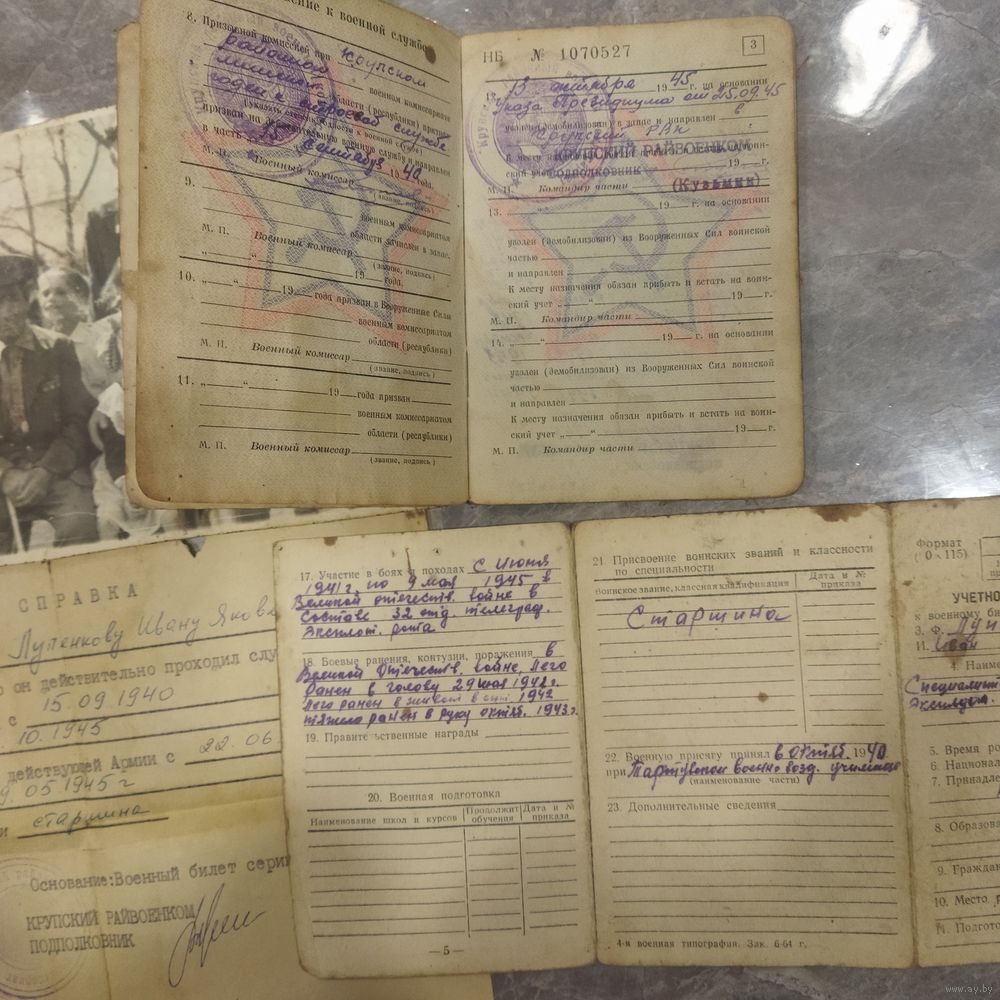 ение к военной службе
8. Призывной комиссией при Крупском
районном военном комиссариате
Минской области (республики) признан
годен к строевой службе
(указать годность к военной службе)
призван на действительную военную службу и направлен
в часть
„15“ сентября 1940 года.
М. П. Военный комиссар
(звание, подпись)
9.
военным комиссариатом
области зачислен в запас.
М. П. Военный комиссар
(звание, подпись)
„ “ 19 года.
10. „ “ 19 года призван в Вооруженные Силы
военным комиссариатом
области (республики)
М. П. Военный комиссар
(звание, подпись)
11. „ “ 19 года призван
военным комиссариатом
области (республики)
М. П. Военный комиссар
(звание, подпись)
НБ № 1070527
3
13 октября 1945 г. на основании
Указа Президиума от 25.09.45
уволен (демобилизован) в запас и направлен в
Крупский РВК
К месту
КРУПСКИЙ РАЙВОЕНКОМ
ский учет 19 г.
ПОДПОЛКОВНИК
М. П. Командир части (Кузьмин)
13. „ “ 19 г. на основании
уволен (демобилизован) из Вооруженных Сил воинской
частью
и направлен
К месту назначения обязан прибыть и встать на воин-
ский учет „ “ 19 г.
М. П. Командир части
14. „ “ 19 г. на основании
уволен (демобилизован) из Вооруженных Сил воинской
частью
и направлен
К месту назначения обязан прибыть и встать на воин-
ский учет „ “ 19 г.
М. П. Командир части
СПРАВКА
Лупенкову Ивану Яковл
о он действительно проходил слу
с 15.09 1940
.10.1945
действующей Армии с 22.06
9.05 1945 г
и старшина
Основание:Военный билет серии
КРУПСКИЙ РАЙВОЕНКОМ
ПОДПОЛКОВНИК
17. Участие в боях и походах С Июня
1941 г. по 9 мая 1945 в
Великой отечеств. войне в
составе 32 отд. телеграф.
эксплот. рота
18. Боевые ранения, контузии, поражения В
Великой Отечеств. войне. Лего
ранен в голову 29 мая 1942 г.
Лего ранен в живот в 1942
тяжело ранен в руку октяб. 1943 г
19. Правительственные награды
20. Военная подготовка
Наименование школ и курсов
Продолжит. обучения
Дата и № приказа
— 5 —
21. Присвоение воинских званий и классности
по специальности
Воинское звание, классная квалификация
Дата и № приказа
Старшина
22. Военную присягу принял в Октяб. 1940
при Тартуском военно возд. училище
(наименование части)
23. Дополнительные сведения
4-я военная типография. Зак. 6-64 г.
Формат
115)
УЧЕТНО
к военному би
З. Ф. Лупе
И. Иван
4. Наимен
Специалист
Эксплуат.
5. Время ро
6. Национал
7. Принадле
8. Образова
9. Граждан
10. Место р
11. Подгото
www.ay.by